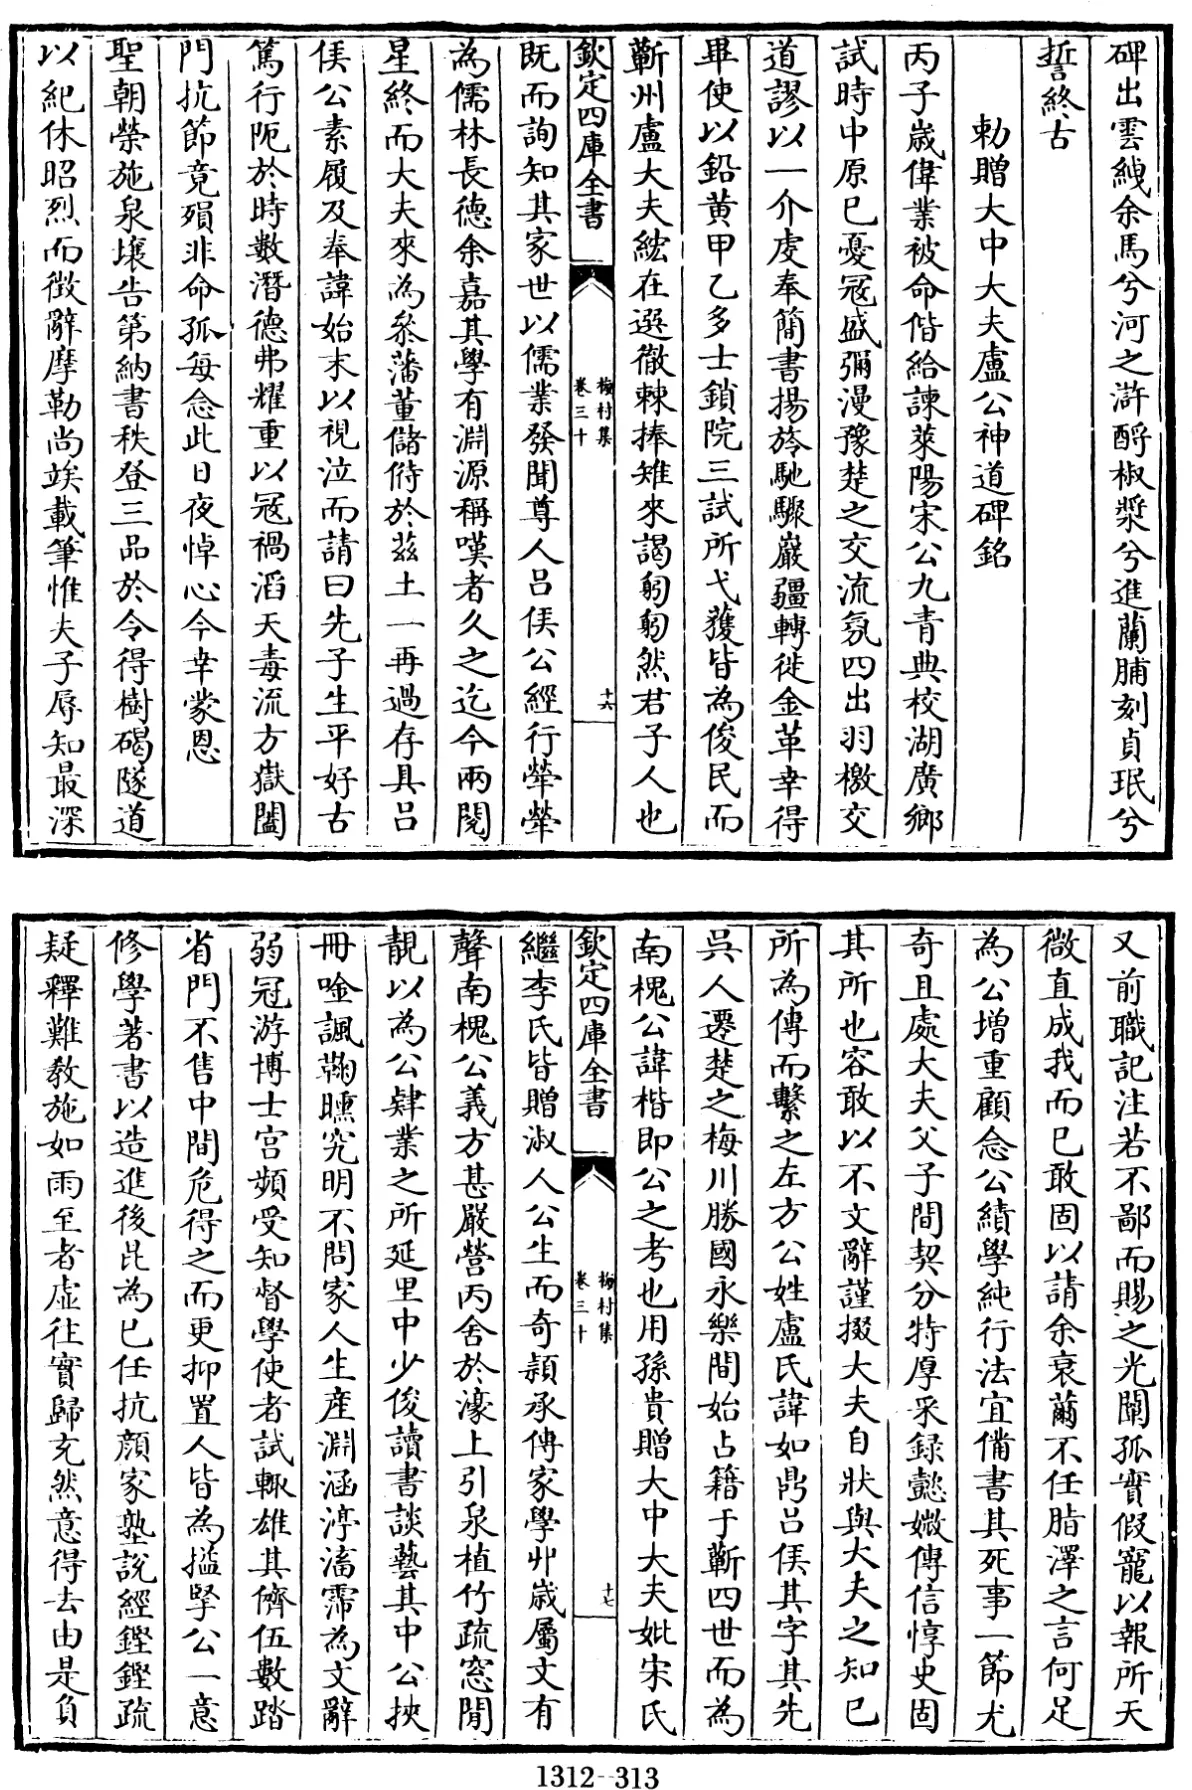 碑出雲絏余馬兮河之滸酹椒漿兮進蘭脯刻貞珉兮
誓終古
勅贈大中大夫盧公神道碑銘
丙子歲偉業被命偕給諫萊陽宋公九青典校湖廣鄉
試時中原已憂冦盛彌漫豫楚之交流氛四出羽檄交
道謬以一介䖍奉簡書揚旍馳驟巖疆轉徙金革幸得
畢使以鉛黄甲乙多士鎖院三試所弋獲皆為俊民而
蘄州盧大夫綋在選徹棘捧雉來謁躬躬然君子人也
欽定四庫全書
梅村集
卷三十
十六
既而詢知其家世以儒業發聞尊人吕侯公經行犖犖
為儒林長德余嘉其學有淵源稱嘆者久之迄今兩閱
星終而大夫來為叅藩董儲偫於兹土一再過存具吕
侯公素履及奉諱始末以視泣而請曰先子生平好古
篤行阨於時數潛德弗耀重以冦禍滔天毒流方嶽闔
門抗節竟殞非命孤每念此日夜悼心今幸蒙恩
聖朝榮施泉壤告第納書秩登三品於令得樹碣隧道
以紀休昭烈而徴辭摩勒尚竢載筆惟夫子辱知最深
又前職記注若不鄙而賜之光闡孤實假寵以報所天
微直成我而已敢固以請余衰薾不任脂澤之言何足
為公增重顧念公績學純行法宜備書其死事一節尤
奇且處大夫父子間契分特厚采録懿媺傳信惇史固
其所也容敢以不文辭謹掇大夫自狀與大夫之知已
所為傳而繫之左方公姓盧氏諱如鼎吕侯其字其先
吳人遷楚之梅川勝國永樂間始占籍于蘄四世而為
南槐公諱楷即公之考也用孫貴贈大中大夫妣宋氏
欽定四庫全書
梅村集
卷三十
十七
繼李氏皆贈淑人公生而奇頴承傳家學丱歲屬文有
聲南槐公義方甚嚴營丙舍於濠上引泉植竹疏窓閒
靚以為公肄業之所延里中少俊讀書談藝其中公挾
冊唫諷鞠䐿究明不問家人生產淵涵渟滀霈為文辭
弱冠游博士宫頻受知督學使者試輙雄其儕伍數踏
省門不售中間危得之而更抑置人皆為搤掔公一意
修學著書以造進後昆為已任抗顔家塾說經鏗鏗疏
疑釋難教施如雨至者虛往實歸充然意得去由是負
1312-313